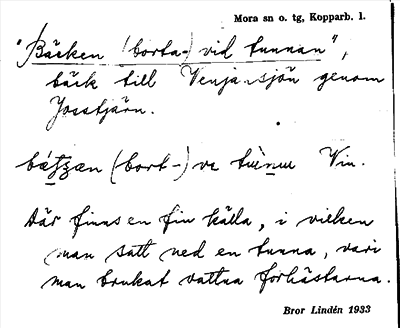 Mora sn o. tg, Kopparb. l.
"Bäcken (borta-) vid tunnan",
bäck till Venjansjön genom
Josstjärn.
(bort-) Vin.
Där finns en fin källa, i vilken
man satt ned en tunna, vari
man brukat vattna forhästarna.
Bror Lindén 1933